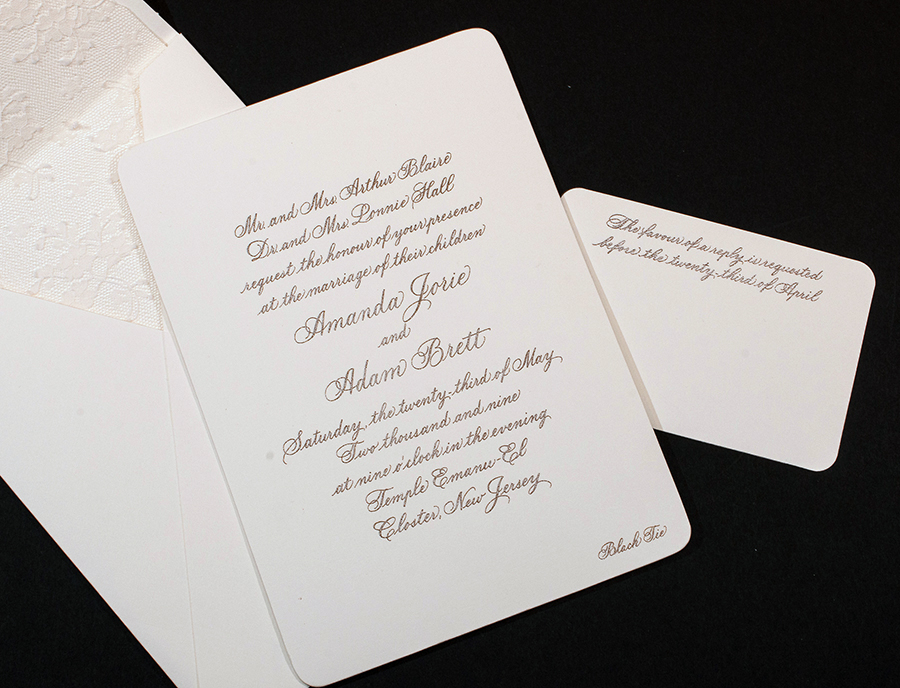 Mr. and Mrs. Arthur Blaire
Dr. and Mrs. Lonnie Hall
request the honour of your presence
at the marriage of their children
Amanda Jorie
and
Adam Brett
Saturday, the twenty-third of May
Two thousand and nine
at nine o'clock in the evening
Temple Emanu-El
Closter, New Jersey
Black Tie
The favour of a reply is requested
before the twenty-third of April